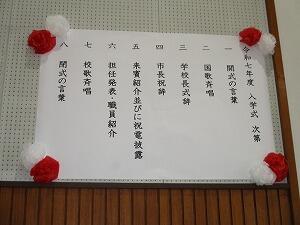 令和七年度 入学式 次第
一 開式の言葉
二 国歌斉唱
三 学校長式辞
四 市長祝辞
五 来賓紹介並びに祝電披露
六 担任発表 職員紹介
七 校歌斉唱
八 閉式の言葉